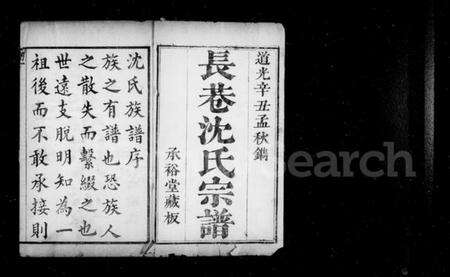 道光辛丑孟秋鐫
長巷沈氏宗譜
承裕堂藏板
沈氏族譜序
族之有譜也恐族人
之散失而繫綴之也
世遠支脫明知為一
祖後而不敢承接則